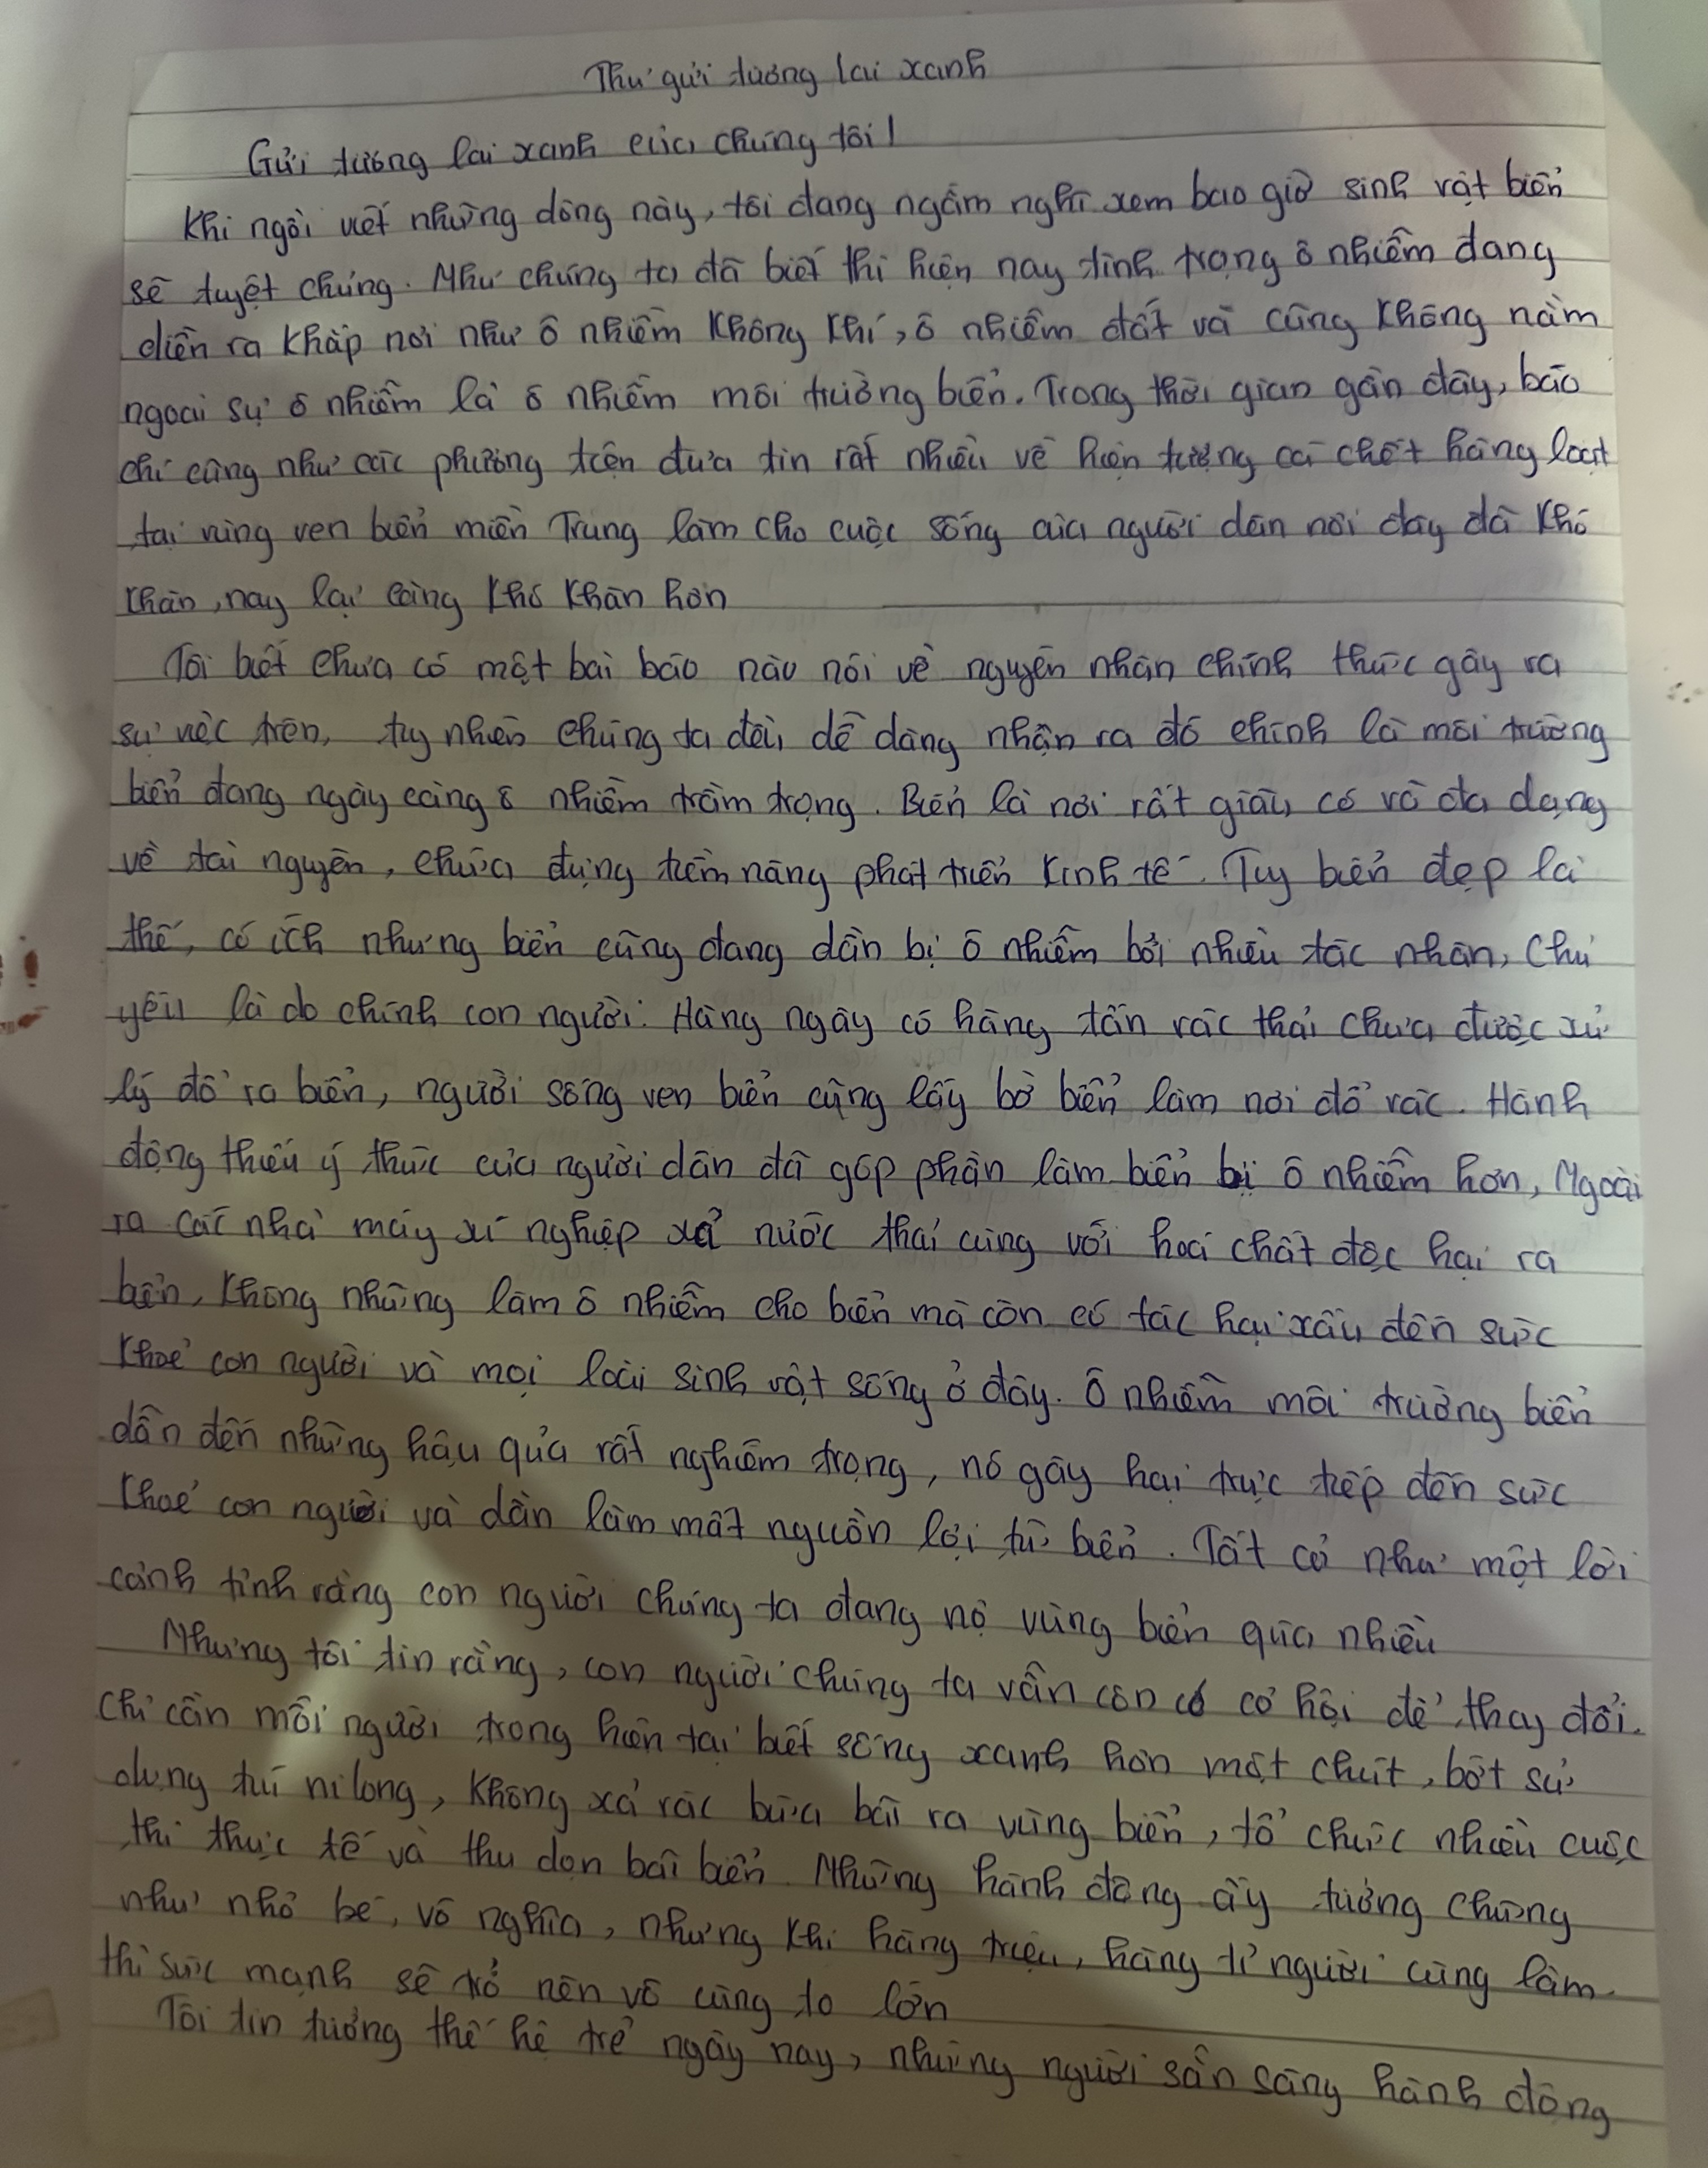 Thư gửi tương lai xanh
Gửi tương lai xanh của chúng tôi!
Khi ngồi viết những dòng này, tôi đang ngẫm nghĩ xem bao giờ sinh vật biển
sẽ tuyệt chủng. Như chúng ta đã biết thì hiện nay tình trạng ô nhiễm đang
diễn ra khắp nơi như ô nhiễm không khí, ô nhiễm đất và cũng không nằm
ngoài sự ô nhiễm là ô nhiễm môi trường biển. Trong thời gian gần đây, báo
chí cũng như các phương tiện đưa tin rất nhiều về hiện tượng cá chết hàng loạt
tại vùng ven biển miền Trung làm cho cuộc sống của người dân nơi đây đã khó
khăn, nay lại càng khó khăn hơn
Tôi biết chưa có một bài báo nào nói về nguyên nhân chính thức gây ra
sự việc trên, tuy nhiên chúng ta đều dễ dàng nhận ra đó chính là môi trường
biển đang ngày càng ô nhiễm trầm trọng. Biển là nơi rất giàu có và đa dạng
về tài nguyên, chứa đựng tiềm năng phát triển kinh tế. Tuy biển đẹp là
thế, có ích nhưng biển cũng đang dần bị ô nhiễm bởi nhiều tác nhân, chủ
yếu là do chính con người. Hàng ngày có hàng tấn rác thải chưa được xử
lý đổ ra biển, người sống ven biển cũng lấy bờ biển làm nơi đổ rác. Hành
động thiếu ý thức của người dân đã góp phần làm biển bị ô nhiễm hơn, Ngoài
ra các nhà máy xí nghiệp xả nước thải cùng với hoá chất độc hại ra
biển, không những làm ô nhiễm cho biển mà còn có tác hại xấu đến sức
khoẻ con người và mọi loài sinh vật sống ở đây. Ô nhiễm môi trường biển
dẫn đến những hậu quả rất nghiêm trọng, nó gây hại trực tiếp đến sức
khoẻ con người và dần làm mất nguồn lợi từ biển. Tất cả như một lời
cảnh tỉnh rằng con người chúng ta đang nợ vùng biển quá nhiều
Nhưng tôi tin rằng, con người chúng ta vẫn còn có cơ hội để thay đổi.
Chỉ cần mỗi người trong hiện tại biết sống xanh hơn một chút, bớt sử
dụng túi nilong, không xả rác bừa bãi ra vùng biển, tổ chức nhiều cuộc
thi thực tế và thu dọn bãi biển. Những hành động ấy tưởng chừng
như nhỏ bé, vô nghĩa, nhưng khi hàng triệu, hàng tỉ người cùng làm
thì sức mạnh sẽ trở nên vô cùng to lớn
Tôi tin tưởng thế hệ trẻ ngày nay, những người sẵn sàng hành động